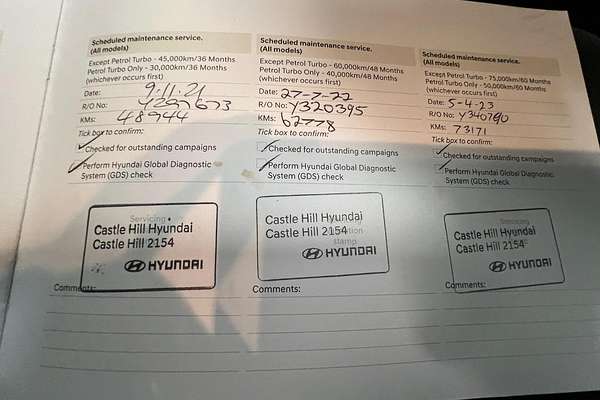 Scheduled maintenance service.
(All models)
Except Petrol Turbo - 45,000km/36 Months
Petrol Turbo Only - 30,000km/36 Months
(whichever occurs first)
Date: 9.11.21
R/O No: Y297673
KMs: 48944
Tick box to confirm:
Checked for outstanding campaigns
Perform Hyundai Global Diagnostic
System (GDS) check
Servicing
Castle Hill Hyundai
Castle Hill 2154
HYUNDAI
Comments:
Scheduled maintenance service.
(All models)
Except Petrol Turbo - 60,000km/48 Months
Petrol Turbo Only - 40,000km/48 Months
(whichever occurs first)
Date: 27-7-22
R/O No: Y320395
KMs: 62778
Tick box to confirm:
Checked for outstanding campaigns
Perform Hyundai Global Diagnostic
System (GDS) check
Castle Hill Hyundai
Castle Hill 2154
stamp
HYUNDAI
Comments:
Scheduled maintenance service.
(All models)
Except Petrol Turbo - 75,000km/60 Months
Petrol Turbo Only - 50,000km/60 Months
(whichever occurs first)
Date: 5-4-23
R/O No: Y340790
KMs: 73171
Tick box to confirm:
Checked for outstanding campaigns
Perform Hyundai Global Diagnostic
System (GDS) check
Servicing
Castle Hill Hyundai
Castle Hill 2154
HYUNDAI
Comments: